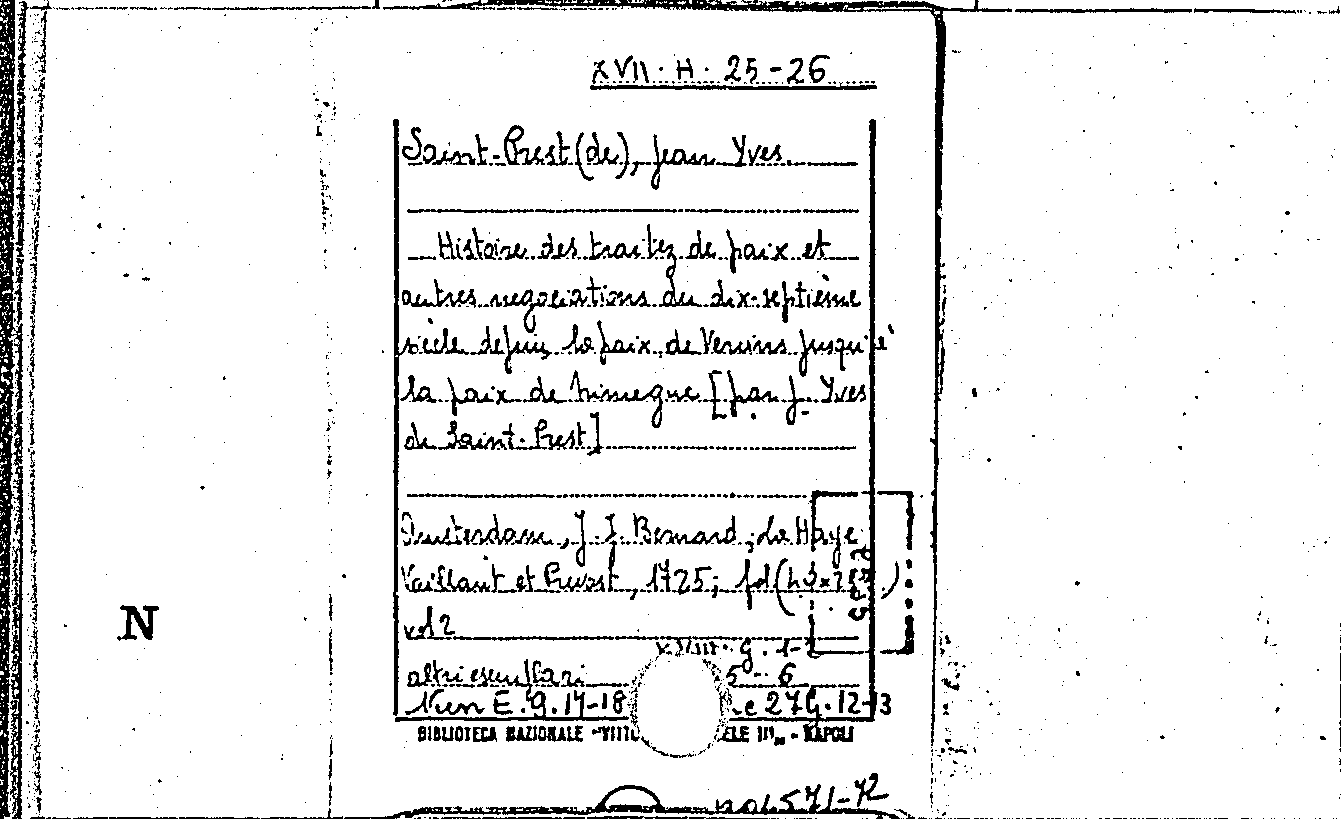 XVII. H. 25-26
Saint-Prest (de), Jean Yves.
Histoire des traitez de paix et
autres negociations du dix-septième
siècle depuis la paix de Vervins jusqu'à
la paix de Nimegue [par J. Yves
de Saint-Prest]
Amsterdam, J. J. Bernard, La Haye
Vaillant et Prevost, 1725; fol (43x
vol 2
G. 1-2
altri esemplari 5-6
Nun E. G. 17-18 e 27 G. 12-13
BIBLIOTECA NAZIONALE "VITTO ELE III" - NAPOLI
571-72
N